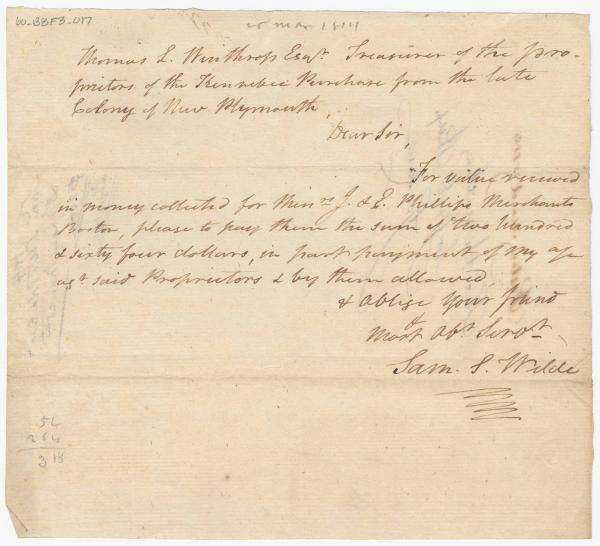 60_B8F3_017
25 Mar 1814
Thomas L. Winthrop Esqr. Treasurer of the pro-
prietors of the Kennebec Purchase from the late
Colony of New Plymouth,
Dear Sir,
For value received
in money collected for Messrs J. & E. Phillips Merchants
Boston, please to pay them the sum of two hundred
& sixty four dollars, in part payment of my a/c
agt said Proprietors & by them allowed,
& oblige your friend
& Most Obt Servt
Sam. S. Wilde
54
264
318